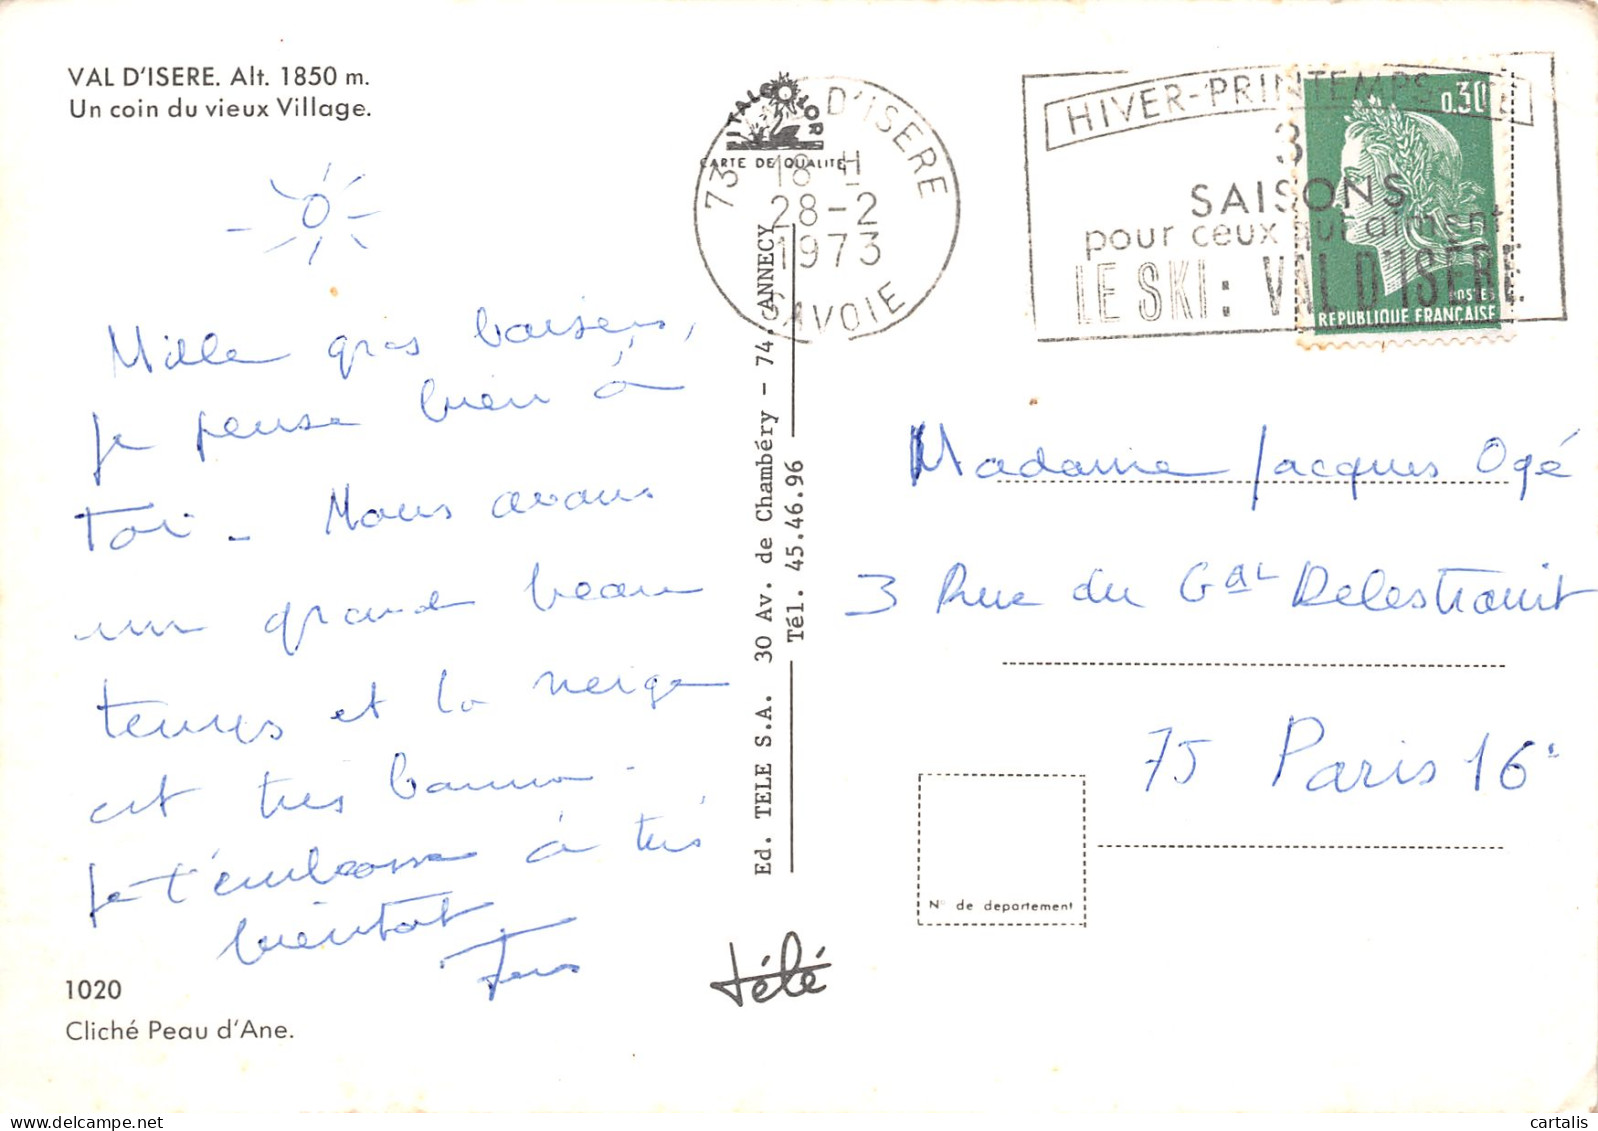 VAL D'ISERE. Alt. 1850 m.
Un coin du vieux Village.
Mille gros baisers,
je pense bien à
toi - Nous avons
un grand beau
temps et la neige
est très bonne -
Je t'embrasse à très
bientôt
1020
Cliché Peau d'Ane.
ITALCOLOR
CARTE DE QUALITÉ
73 VAL D'ISERE
18 H
28-2
1973
SAVOIE
HIVER-PRINTEMPS-ÉTÉ
3
SAISONS
pour ceux qui aiment
LE SKI: VAL D'ISÈRE
0,30
POSTES
REPUBLIQUE FRANÇAISE
Ed. TELE S.A. 30 Av. de Chambéry - 74. ANNECY
Tél. 45.46.96
télé
Madame Jacques Ogé
3 Rue du Gal Delestraint
75 Paris 16e
N° de departement
cartalis